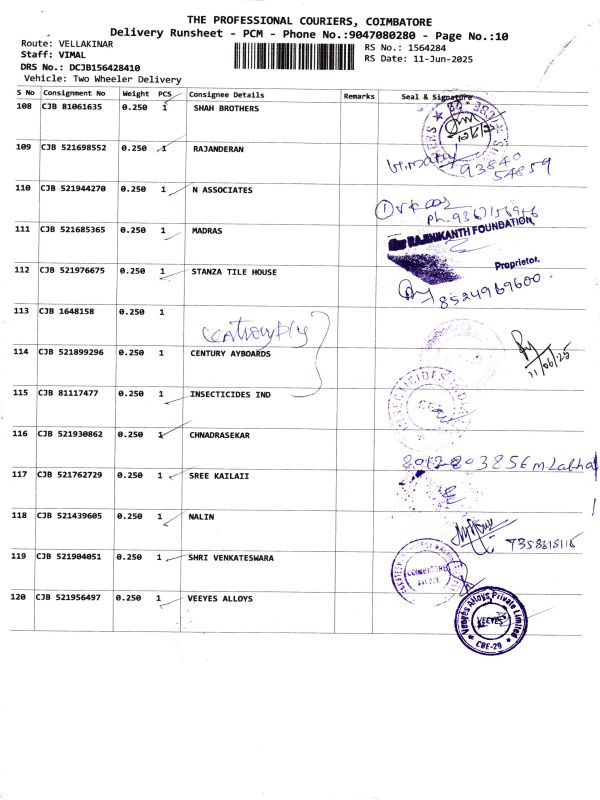 THE PROFESSIONAL COURIERS, COIMBATORE
Delivery Runsheet - PCM - Phone No.:9047080280 - Page No.:10
Route: VELLAKINAR
RS No.: 1564284
Staff: VIMAL
RS Date: 11-Jun-2025
DRS No.: DCJB156428410
Vehicle: Two Wheeler Delivery
S No Consignment No Weight PCS Consignee Details Remarks Seal & Signature
108 CJB 81061635 0.250 1 SHAH BROTHERS
109 CJB 521698552 0.250 1 RAJANDERAN
93840
54859
110 CJB 521944270 0.250 1 N ASSOCIATES
111 CJB 521685365 0.250 1 MADRAS
RAJINIKANTH FOUNDATION,
Proprietor,
112 CJB 521976675 0.250 1 STANZA TILE HOUSE
8524969600
113 CJB 1648158 0.250 1
centuryply
114 CJB 521899296 0.250 1 CENTURY AYBOARDS
11/06/25
115 CJB 81117477 0.250 1 INSECTICIDES IND
116 CJB 521930862 0.250 1 CHNADRASEKAR
117 CJB 521762729 0.250 1 SREE KAILAII
118 CJB 521439605 0.250 1 NALIN
119 CJB 521904051 0.250 1 SHRI VENKATESWARA
COIMBATORE
120 CJB 521956497 0.250 1 VEEYES ALLOYS
Veeyes Alloys Private Limited
VEEYES
CBE-29